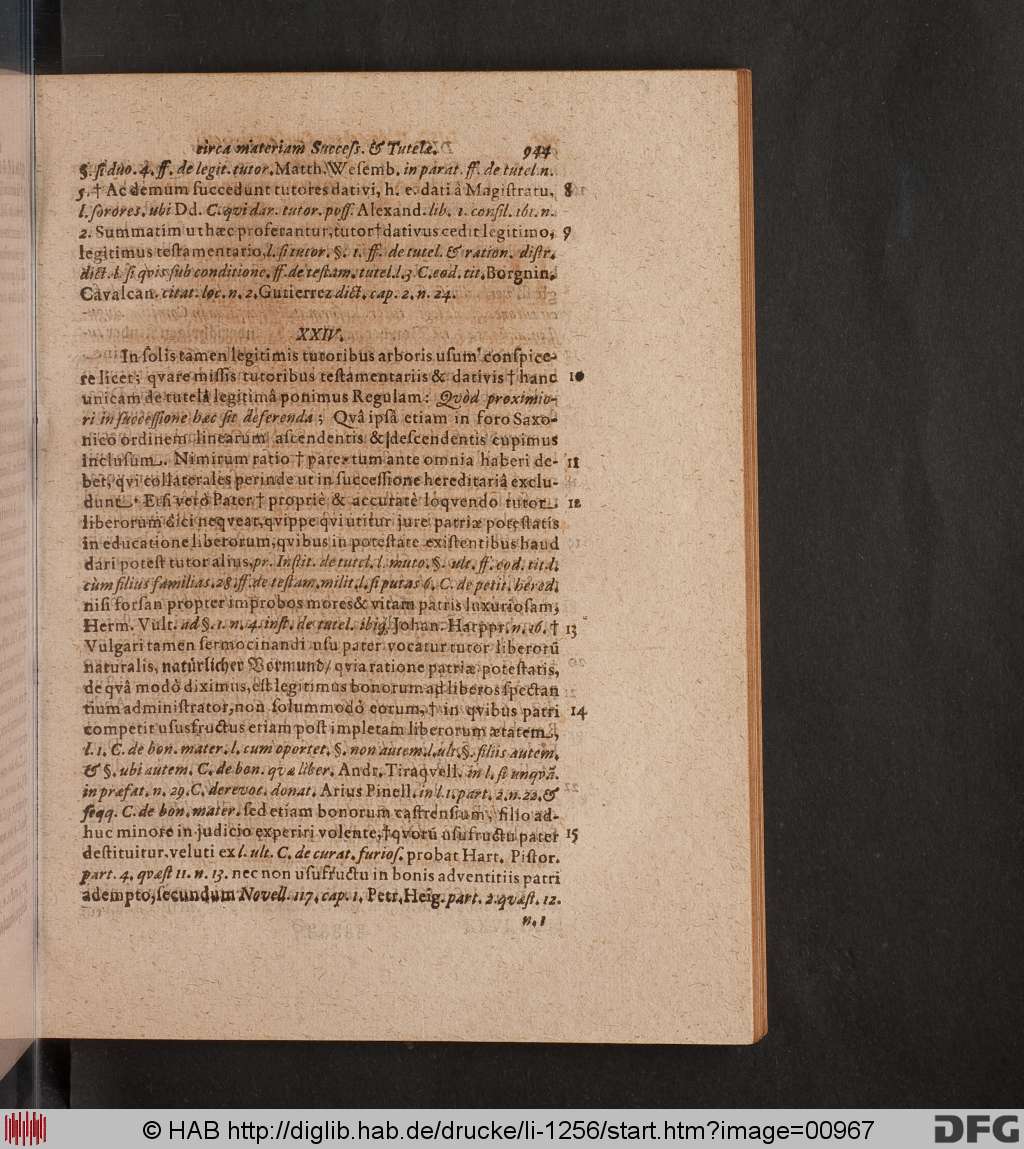 circa materiam Success. & Tutelæ. 944
§. si duo. 4. ff. de legit. tutor. Matth. Wesemb. in parat. ff. de tutel. n.
5. † Ac demum succedunt tutores dativi, h. e. dati â Magistratu, 8
l. sorores. ubi Dd. C. qvi dar. tutor. poss. Alexand. lib. 1. consil. 161. n.
2. Summatim ut hæc proferantur, tutor † dativus cedit legitimo, 9
legitimus testamentario, l. si tutor. §. 1. ff. de tutel. & ration. distr.
dict. l. si qvis sub conditione. ff. de testam. tutel. l. 3 C. eod. tit. Borgnin.
Cavalcan. citat. loc. n. 2. Gutierrez dict. cap. 2. n. 24.
XXIV.
In solis tamen legitimis tutoribus arboris usum conspice-
re licet; qvare missis tutoribus testamentariis & dativis † hanc 10
unicam de tutelâ legitimâ ponimus Regulam: Qvòd proximio-
ri in successione hæc sit deferenda; Qvâ ipsâ etiam in foro Saxo-
nico ordinem linearum ascendentis & descendentis cupimus
inclusum. Nimirum ratio † parentum ante omnia haberi de- 11
bet, qvi collaterales perinde ut in successione hereditariâ exclu-
dunt. Etsi verò Pater † propriè & accuratè loqvendo tutor 12
liberorum dici neqveat, qvippe qvi utitur jure patriæ potestatis
in educatione liberorum, qvibus in potestate existentibus haud
dari potest tutor alius, pr. Instit. de tutel. l. muto. §. ult. ff. eod. tit. l.
cùm filius familias. 28. ff. de testam. milit. l. si putas 6. C. de petit. hered.
nisi forsan propter improbos mores & vitam patris luxuriosam,
Herm. Vult. ad §. 1. n. 4. inst. de tutel. ibiq; Johan. Harppr. n. 16. † 13
Vulgari tamen sermocinandi usu pater vocatur tutor liberorũ
naturalis, natürlicher Vormund/ qvia ratione patriæ potestatis,
de qvâ modò diximus, est legitimus bonorum ad liberos spectan
tium administrator, non solummodò eorum, † in qvibus patri 14
competit ususfructus etiam post impletam liberorum ætatem,
l. 1. C. de bon. mater. l. cum oportet. §. non autem. l. ult. §. filiis autem.
& §. ubi autem. C. de bon. qvæ liber. Andr. Tiraqvell. in l. si unqvã.
in præfat. n. 29. C. de revoc. donat. Arius Pinell. in l. 1. part. 2. n. 22. &
seqq. C. de bon. mater. sed etiam bonorum castrensium, filio ad-
huc minore in judicio experiri volente, † qvorũ usufructu pater 15
destituitur. veluti ex l. ult. C. de curat. furios. probat Hart. Pistor.
part. 4. qvæst 11. n. 13. nec non usufructu in bonis adventitiis patri
adempto, secundum Novell. 117. cap. 1. Petr. Heig. part. 2. qvæst. 12.
n. 1
© HAB http://diglib.hab.de/drucke/li-1256/start.htm?image=00967
DFG